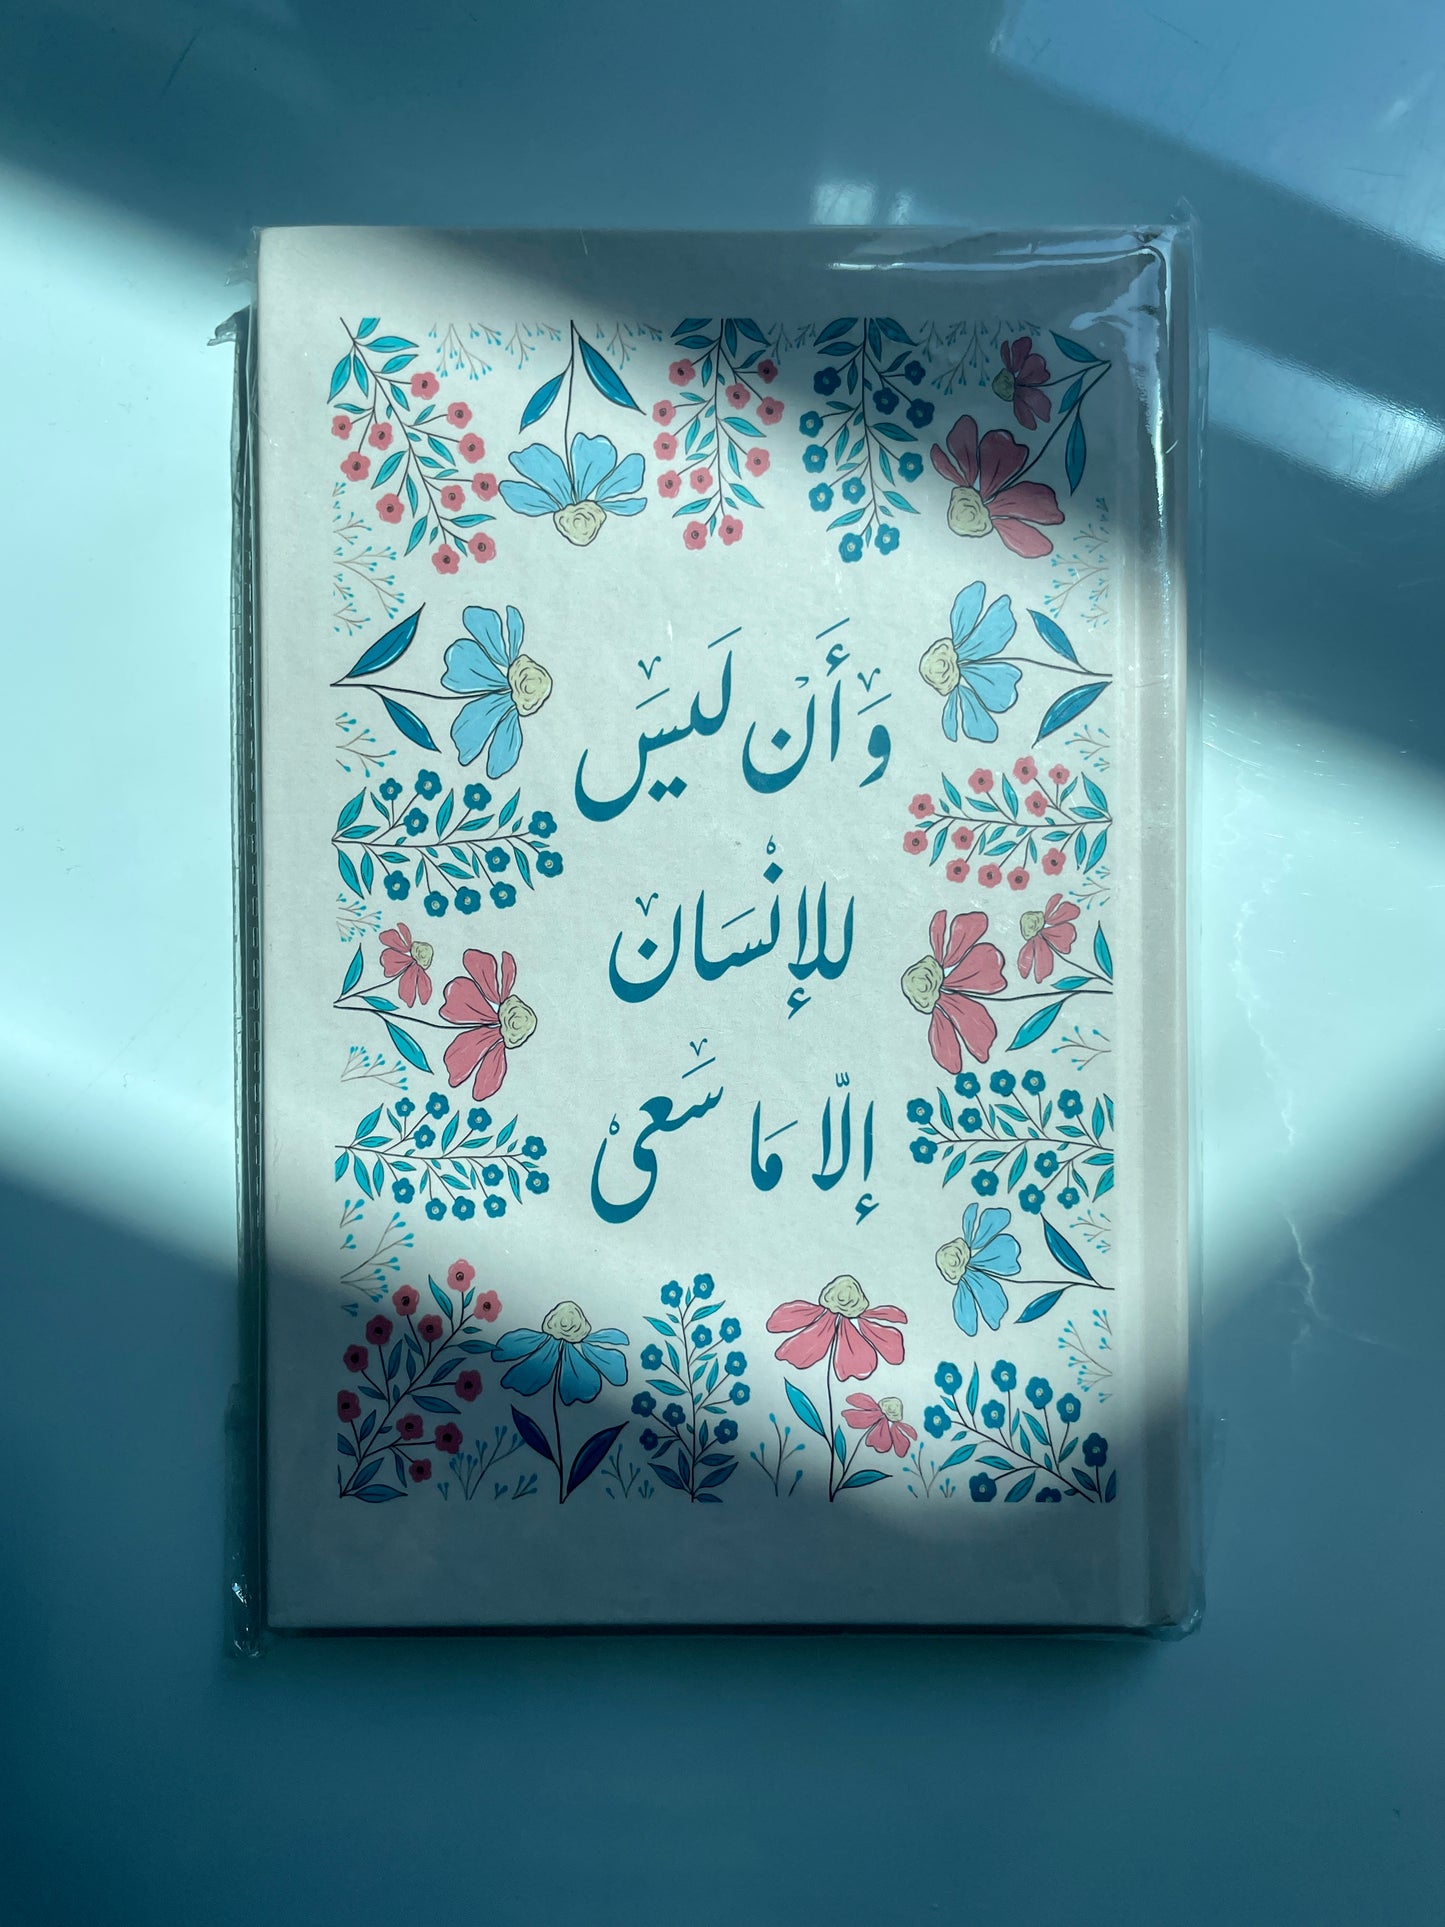 وَأَنْ لَيسَ
للإنْسَان
إلّا مَا سَعىْ